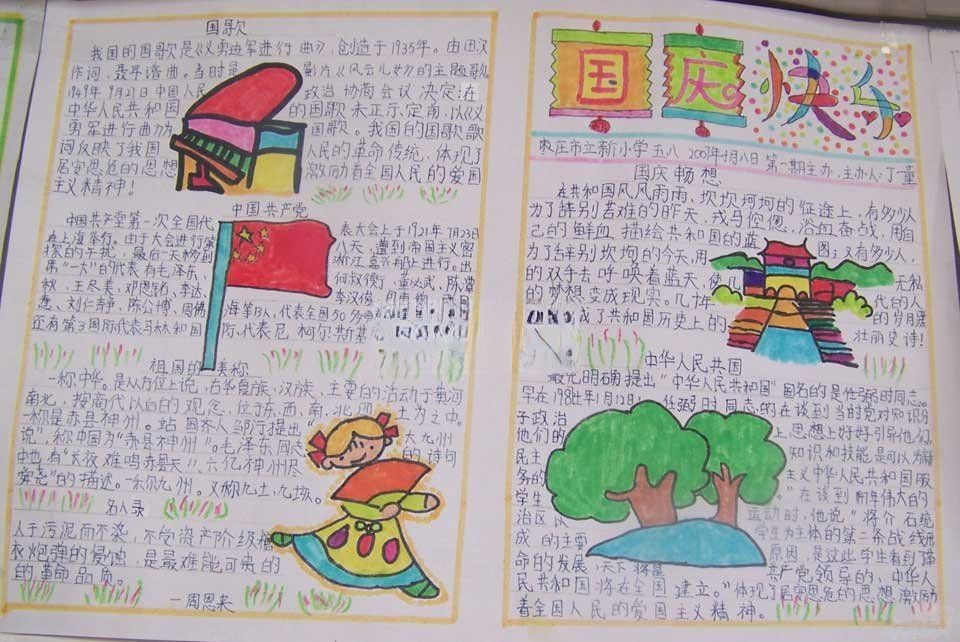 国歌
我国的国歌是《义勇军进行曲》,创造于1935年。由田汉
作词,聂耳谱曲。当时是影片《风云儿女》的主题歌
1949年9月21日中国人民政治协商会议决定:在
中华人民共和国的国歌未正示定南,以《义
勇军进行曲为国歌。我国的国歌歌
词反映了我国人民的革命传统,体现了
居安思危的思想激励着全国人民的爱国
主义精神!
中国共产党
中国共产党第一次全国代表大会上于1921年7月23日
在上海举行。由于大会进行八天,遭到帝国主义密
探的干扰,最后一天移到浙江嘉兴船上进行。出
席"一大"的代表有毛泽东、何叔衡、董必武、陈潭
秋、王尽美、邓恩铭、李达、李汉俊、
进、刘仁静、陈公博、周佛海等13人,代表全国50多
还有第3国际代表马林和国际代表尼柯尔·斯基
祖国的美称
一称中华。是从方位上说,古华夏族、汉族,主要的活动于黄河
南北,按高代以后的观念,位于东、西、南、北
一称是赤县神州。
说",称中国为"赤县神州"。毛泽东同志的诗句
中也有"长夜难鸣赤县天"、"六亿神州尽
舜尧"的描述。一东尔九州。又称九土、九域。
名人录
人于污泥而不染,不受资产阶级糖
衣炮弹的侵蚀,是最难能可贵的
的革命品质。
一周恩来
国庆快乐
枣庄市立新小学 五八 第一期主办:主办人:丁董
国庆畅想
在共和国风风雨雨、坎坎坷坷的征途上,有多少人
为了辞别苦难的昨天,戎马倥偬,浴血奋战,用自
己的鲜血描绘共和国的蓝图;又有多少人,
为了辞别坎坷的今天,用无私
的双手去呼唤着蓝天,使几代的人
的梦想变成现实。几十年的岁月
成了共和国历史上的壮丽史诗!
中华人民共国
最先明确提出"中华人民共和国"国名的是任弼时同志。
早在1984年1月12日,任弼时同志的在谈到当时党对知识分
子政治上、思想上好好引导他们,
他们的知识和技能是可以为
民主主义中华人民共和国服
务的。"在谈到
学生运动时,他说"将介石统
治区以学生为主体的第二条战线
成的主要原因,是过些学生看到了
命的发展,天下将是共产党领导的,中华人
民共和国将在全国建立。"体现了居安思危的思想激励
着全国人民的爱国主义精神。